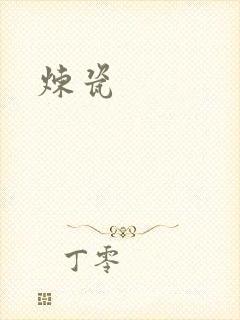 炼瓷
丁零